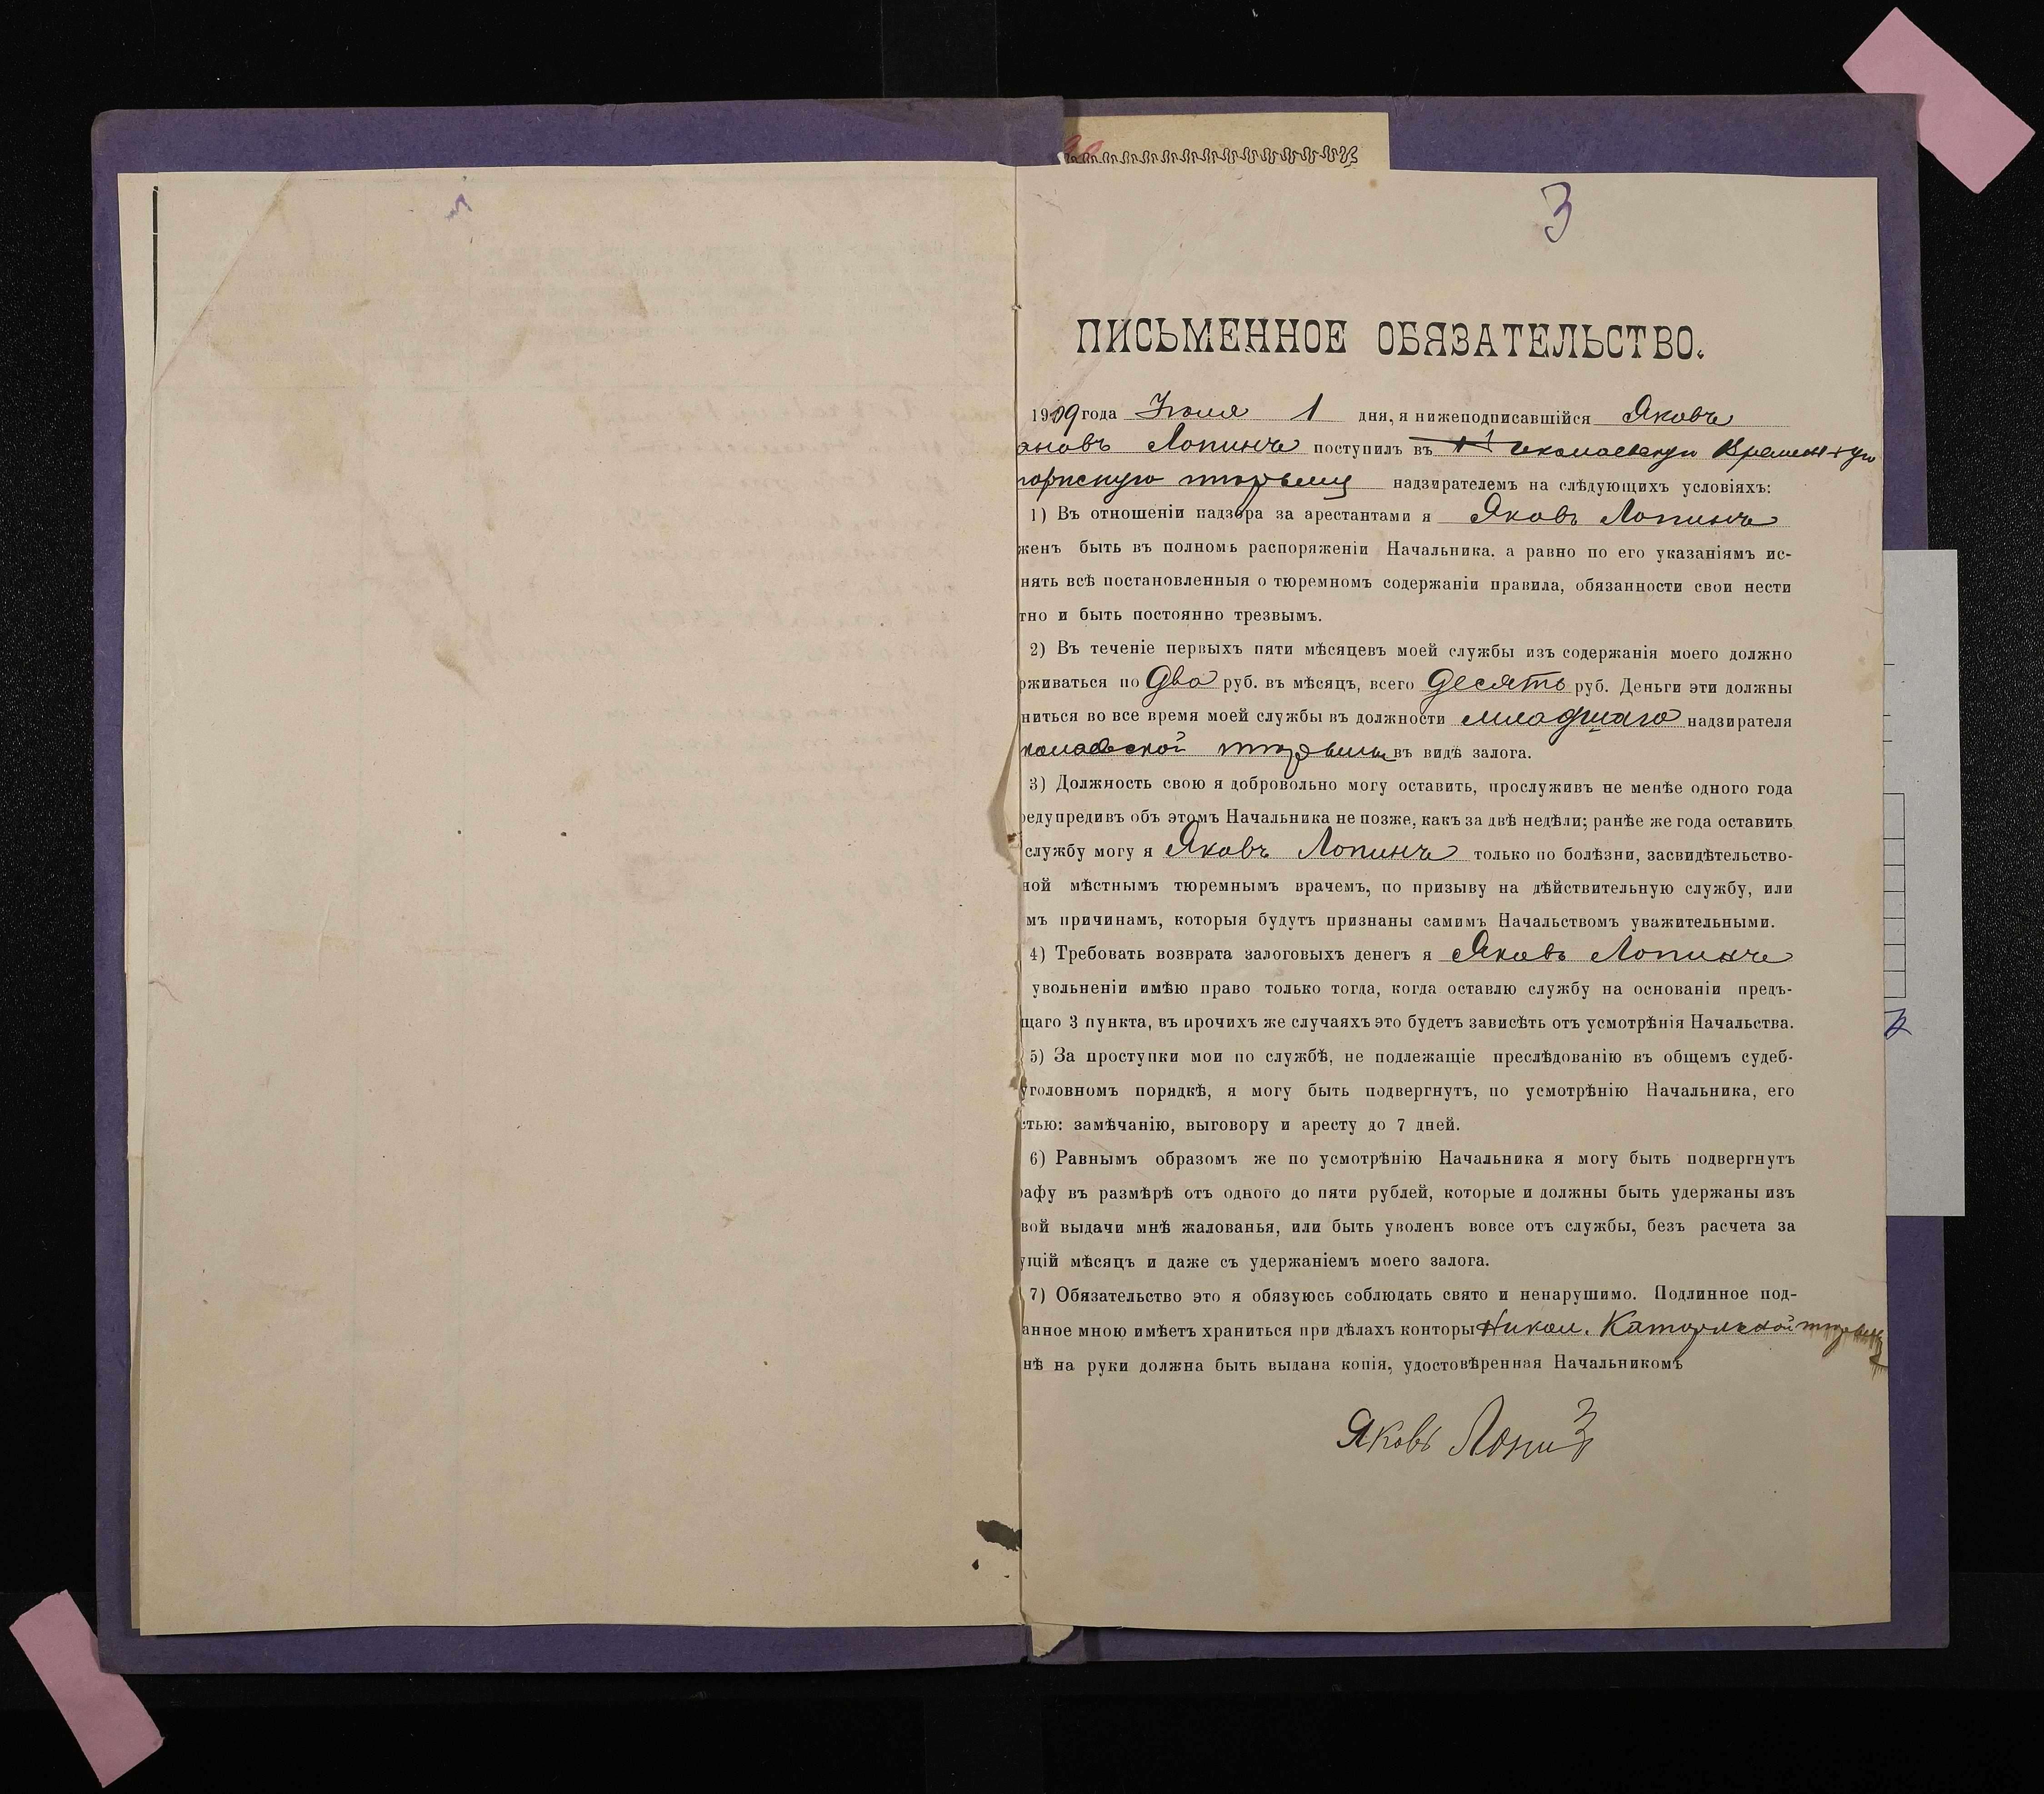 3
ПИСЬМЕННОЕ ОБЯЗАТЕЛЬСТВО.
1909 года Іюля 1 дня, я нижеподписавшійся Яковъ
ановъ Лопинъ поступилъ въ Николаевскую Временную
торжскую тюрьму надзирателемъ на слѣдующихъ условіяхъ:
1) Въ отношеніи надзора за арестантами я Яковъ Лопинъ
женъ быть въ полномъ распоряженіи Начальника. а равно по его указаніямъ ис-
нять всѣ постановленныя о тюремномъ содержаніи правила, обязанности свои нести
тно и быть постоянно трезвымъ.
2) Въ теченіе первыхъ пяти мѣсяцевъ моей службы изъ содержанія моего должно
рживаться по два руб. въ мѣсяцъ, всего десять руб. Деньги эти должны
ниться во все время моей службы въ должности младшаго надзирателя
колаевской тюрьмы въ видѣ залога.
3) Должность свою я добровольно могу оставить, прослуживъ не менѣе одного года
редупредивъ объ этомъ Начальника не позже, какъ за двѣ недѣли; ранѣе же года оставить
службу могу я Яковъ Лопинъ только по болѣзни, засвидѣтельство-
ной мѣстнымъ тюремнымъ врачемъ, по призыву на дѣйствительную службу, или
мъ причинамъ, которыя будутъ признаны самимъ Начальствомъ уважительными.
4) Требовать возврата залоговыхъ денегъ я Яковъ Лопинъ
увольненіи имѣю право только тогда, когда оставлю службу на основаніи предъ-
щаго 3 пункта, въ прочихъ же случаяхъ это будетъ зависѣть отъ усмотрѣнія Начальства.
5) За проступки мои по службѣ, не подлежащіе преслѣдованію въ общемъ судеб-
уголовномъ порядкѣ, я могу быть подвергнутъ, по усмотрѣнію Начальника, его
стью: замѣчанію, выговору и аресту до 7 дней.
6) Равнымъ образомъ же по усмотрѣнію Начальника я могу быть подвергнутъ
рафу въ размѣрѣ отъ одного до пяти рублей, которые и должны быть удержаны изъ
вой выдачи мнѣ жалованья, или быть уволенъ вовсе отъ службы, безъ расчета за
ущій мѣсяцъ и даже съ удержаніемъ моего залога.
7) Обязательство это я обязуюсь соблюдать свято и ненарушимо. Подлинное под-
анное мною имѣетъ храниться при дѣлахъ конторы Никол. Каторжной тюрьмы
нѣ на руки должна быть выдана копія, удостовѣренная Начальникомъ
Яковъ Лопи